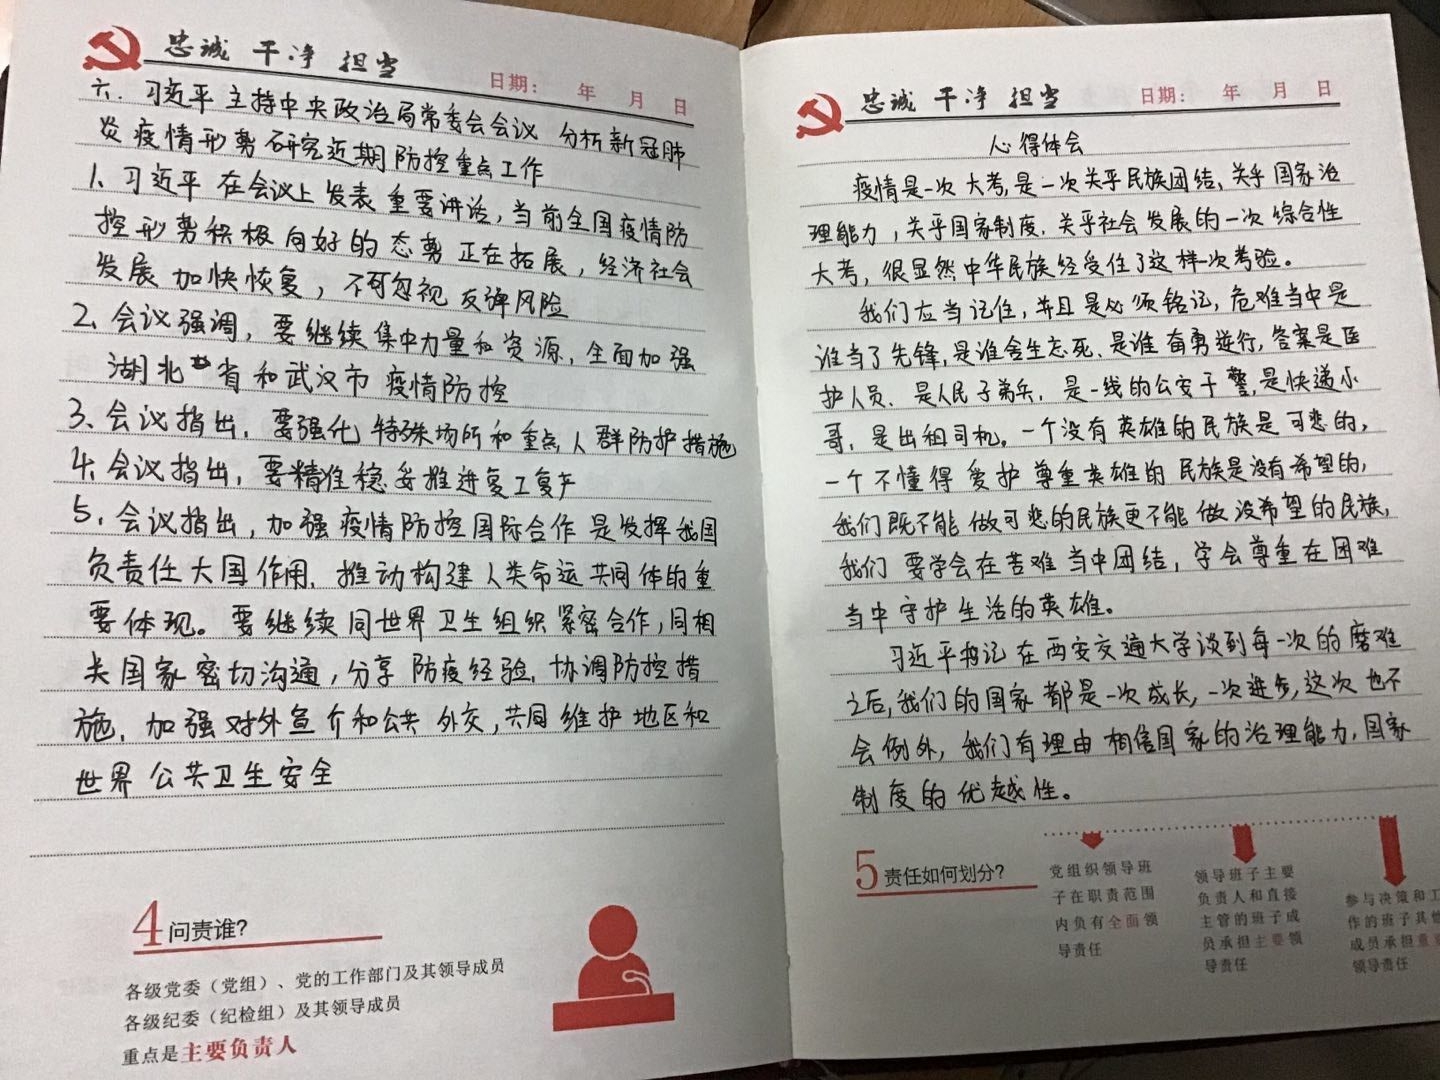 忠诚 干净 担当
日期: 年 月 日
六. 习近平主持中央政治局常委会会议 分析新冠肺
炎疫情形势研究近期防控重点工作
1、习近平在会议上发表重要讲话,当前全国疫情防
控形势积极向好的态势正在拓展,经济社会
发展加快恢复,不可忽视反弹风险
2、会议强调,要继续集中力量和资源,全面加强
湖北省和武汉市疫情防控
3、会议指出,要强化特殊场所和重点人群防护措施
4、会议指出,要精准稳妥推进复工复产
5、会议指出,加强疫情防控国际合作是发挥我国
负责任大国作用、推动构建人类命运共同体的重
要体现。要继续同世界卫生组织紧密合作,同相
关国家密切沟通,分享防疫经验,协调防控措
施,加强对外宣介和公共外交,共同维护地区和
世界公共卫生安全
4 问责谁?
各级党委（党组）、党的工作部门及其领导成员
各级纪委（纪检组）及其领导成员
重点是主要负责人
忠诚 干净 担当
日期: 年 月 日
心得体会
疫情是一次大考,是一次关乎民族团结,关乎国家治
理能力,关乎国家制度、关乎社会发展的一次综合性
大考,很显然中华民族经受住了这样一次考验。
我们应当记住,并且是必须铭记,危难当中是
谁当了先锋,是谁舍生忘死、是谁奋勇逆行,答案是医
护人员、是人民子弟兵,是一线的公安干警,是快递小
哥,是出租司机。一个没有英雄的民族是可悲的,
一个不懂得爱护尊重英雄的民族是没有希望的,
我们既不能做可悲的民族更不能做没希望的民族,
我们要学会在苦难当中团结,学会尊重在困难
当中守护生活的英雄。
习近平书记在西安交通大学谈到每一次的磨难
之后,我们的国家都是一次成长,一次进步,这次也不
会例外,我们有理由相信国家的治理能力,国家
制度的优越性。
5 责任如何划分?
党组织领导班
子在职责范围
内负有全面领
导责任
领导班子主要
负责人和直接
主管的班子成
员承担主要领
导责任
参与决策和工
作的班子其他
成员承担重要
领导责任